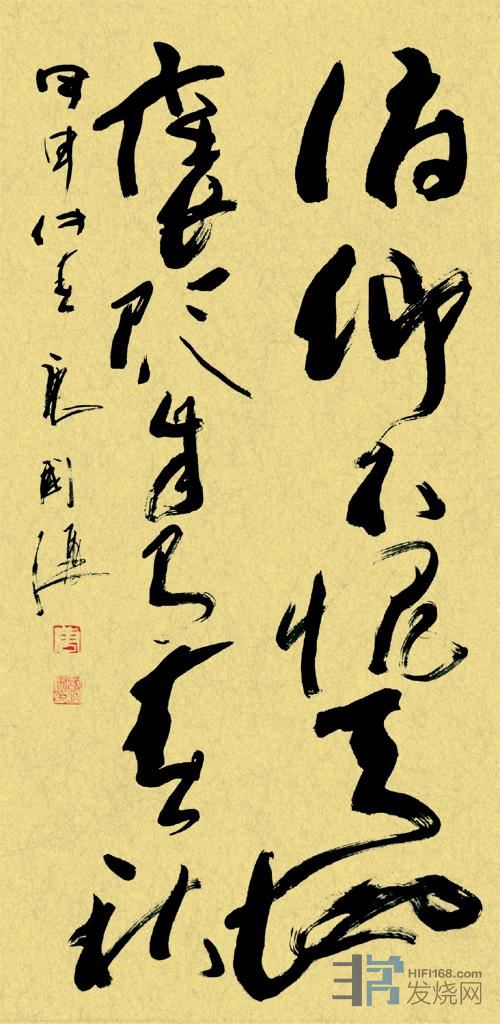 俯仰不愧天地
褒貶自有春秋
甲申仲春
HIFI168.com
发烧网